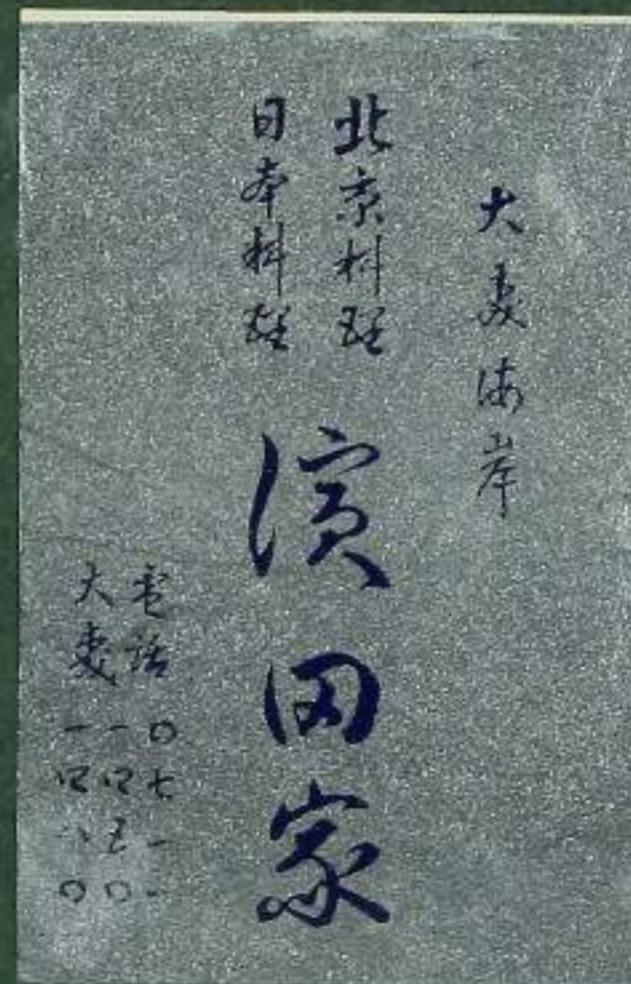 大森海岸
北京料理
日本料理
濱田家
電話
大森
〇七一一
一四五〇